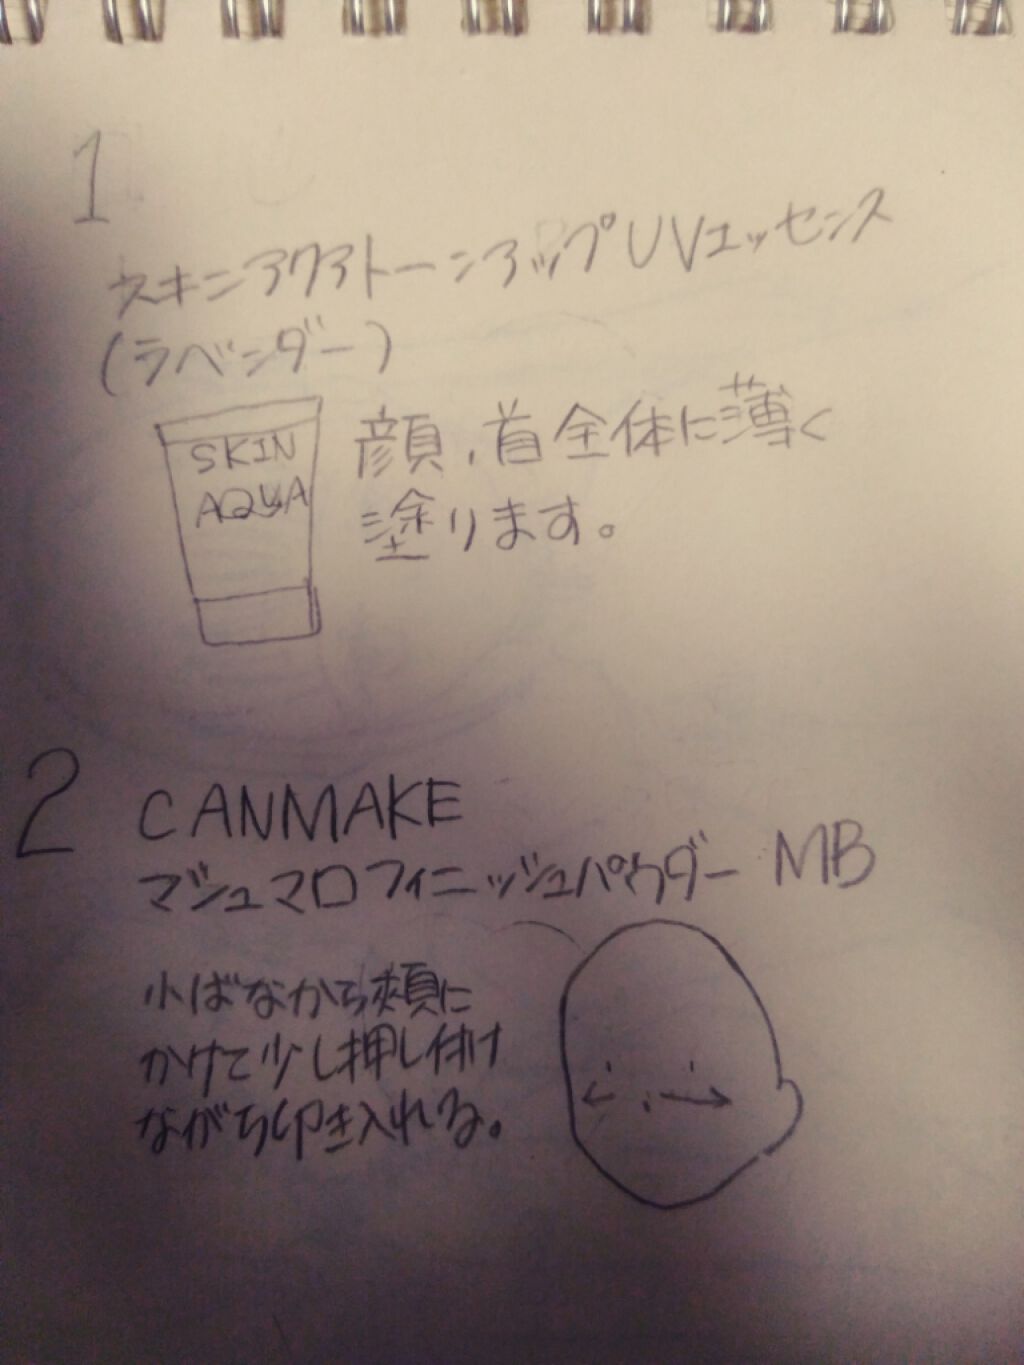 1
スキンアクアトーンアップUVエッセンス
(ラベンダー)
SKIN
AQUA
顔、首全体に薄く
塗ります。
2
CANMAKE
マシュマロフィニッシュパウダー MB
小ばなから頬に
かけて少し押し付け
ながら叩き入れる。